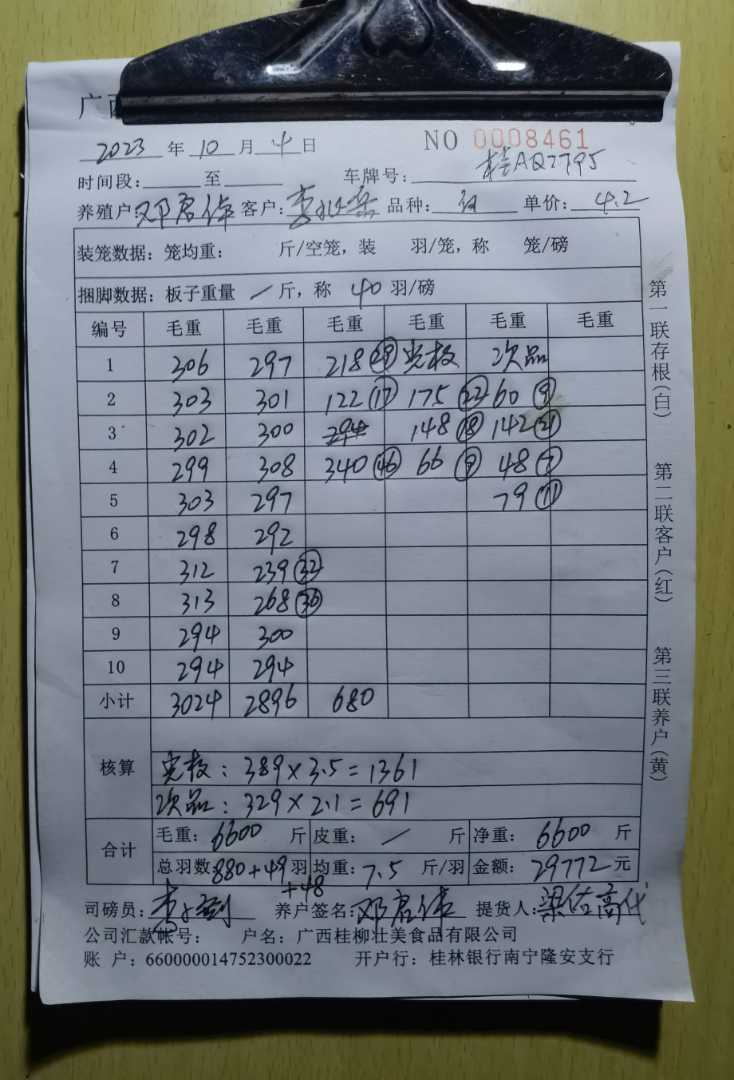 广西
2023 年 10 月 4 日 NO 0008461
时间段: 至 车牌号: 桂AQ7795
养殖户 邓启伟 客户: 品种: 单价: 4.2
装笼数据: 笼均重: 斤/空笼, 装 羽/笼, 称 笼/磅
捆脚数据: 板子重量 / 斤, 称 40 羽/磅
编号 毛重 毛重 毛重 毛重 毛重 毛重
1 306 297 218 28 光板 次品
2 303 301 122 17 175 22 60 9
3 302 300 294 148 18 142 21
4 299 308 340 46 66 9 48 7
5 303 297 79 11
6 298 292
7 312 239 32
8 313 268 36
9 294 300
10 294 294
小计 3024 2896 680
核算
光板: 389×3.5=1361
次品: 329×2.1=691
合计 毛重: 6600 斤 皮重: / 斤 净重: 6600 斤
总羽数: 880+49 羽 均重: 7.5 斤/羽 金额: 29772 元
+48
司磅员: 养户签名: 邓启伟 提货人: 梁佑高代
公司汇款帐号: 户名: 广西桂柳壮美食品有限公司
账 户: 660000014752300022 开户行: 桂林银行南宁隆安支行
第一联存根(白)
第二联客户(红)
第三联养户(黄)